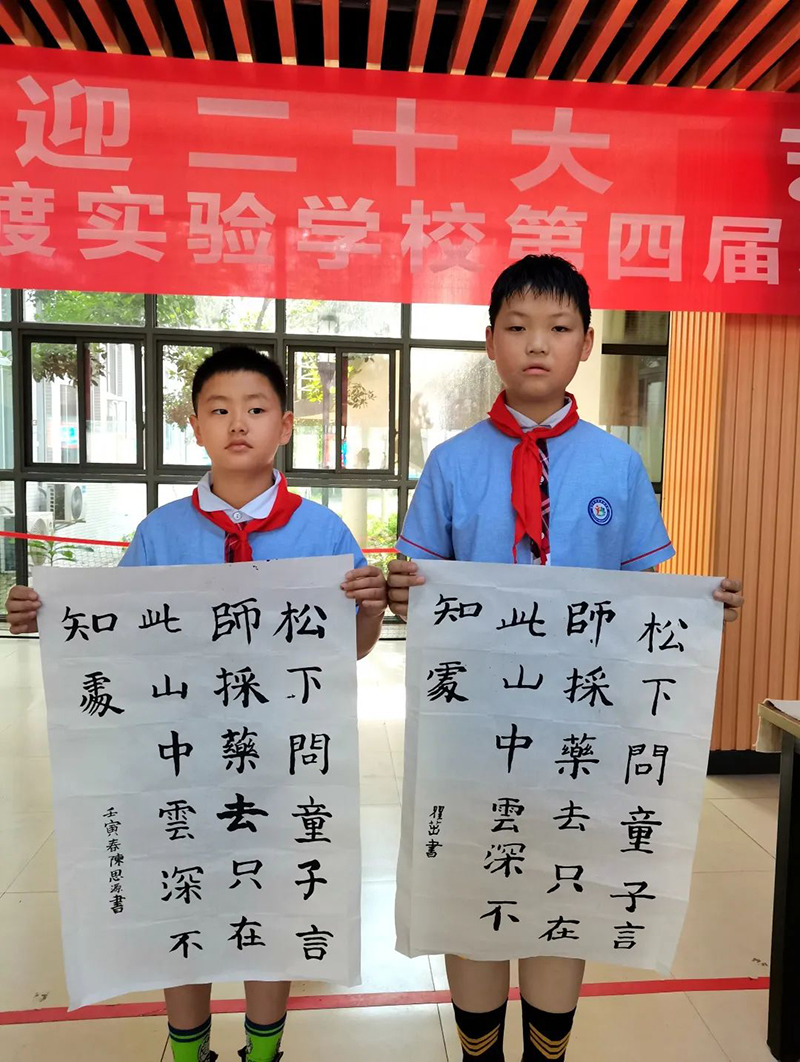 迎二十大
度实验学校第四届
松下問童子言
師採藥去只在
此山中雲深不
知處
壬寅春陳思源書
松下問童子言
師採藥去只在
此山中雲深不
知處
瞿茁書